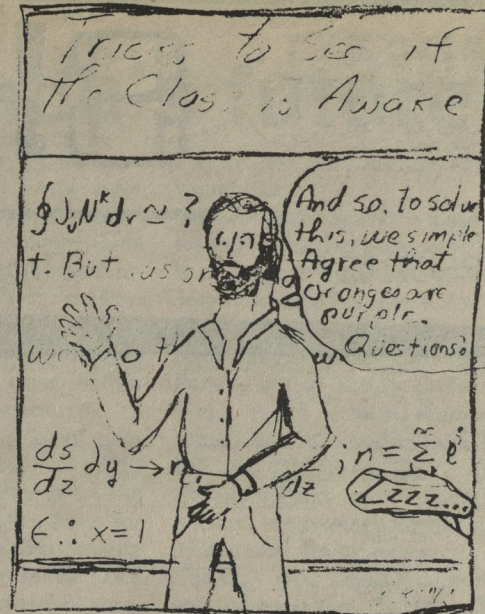 Tricks to See if
the Class is Awake
∮ J_u N^k dv ≃ ?
And so, to solve
this, we simple
Agree that
Oranges are
purple.
Questions?
t. But
ds/dz dy →
dz ; n = Σ
Zzzz...
∈ ∴ x=1